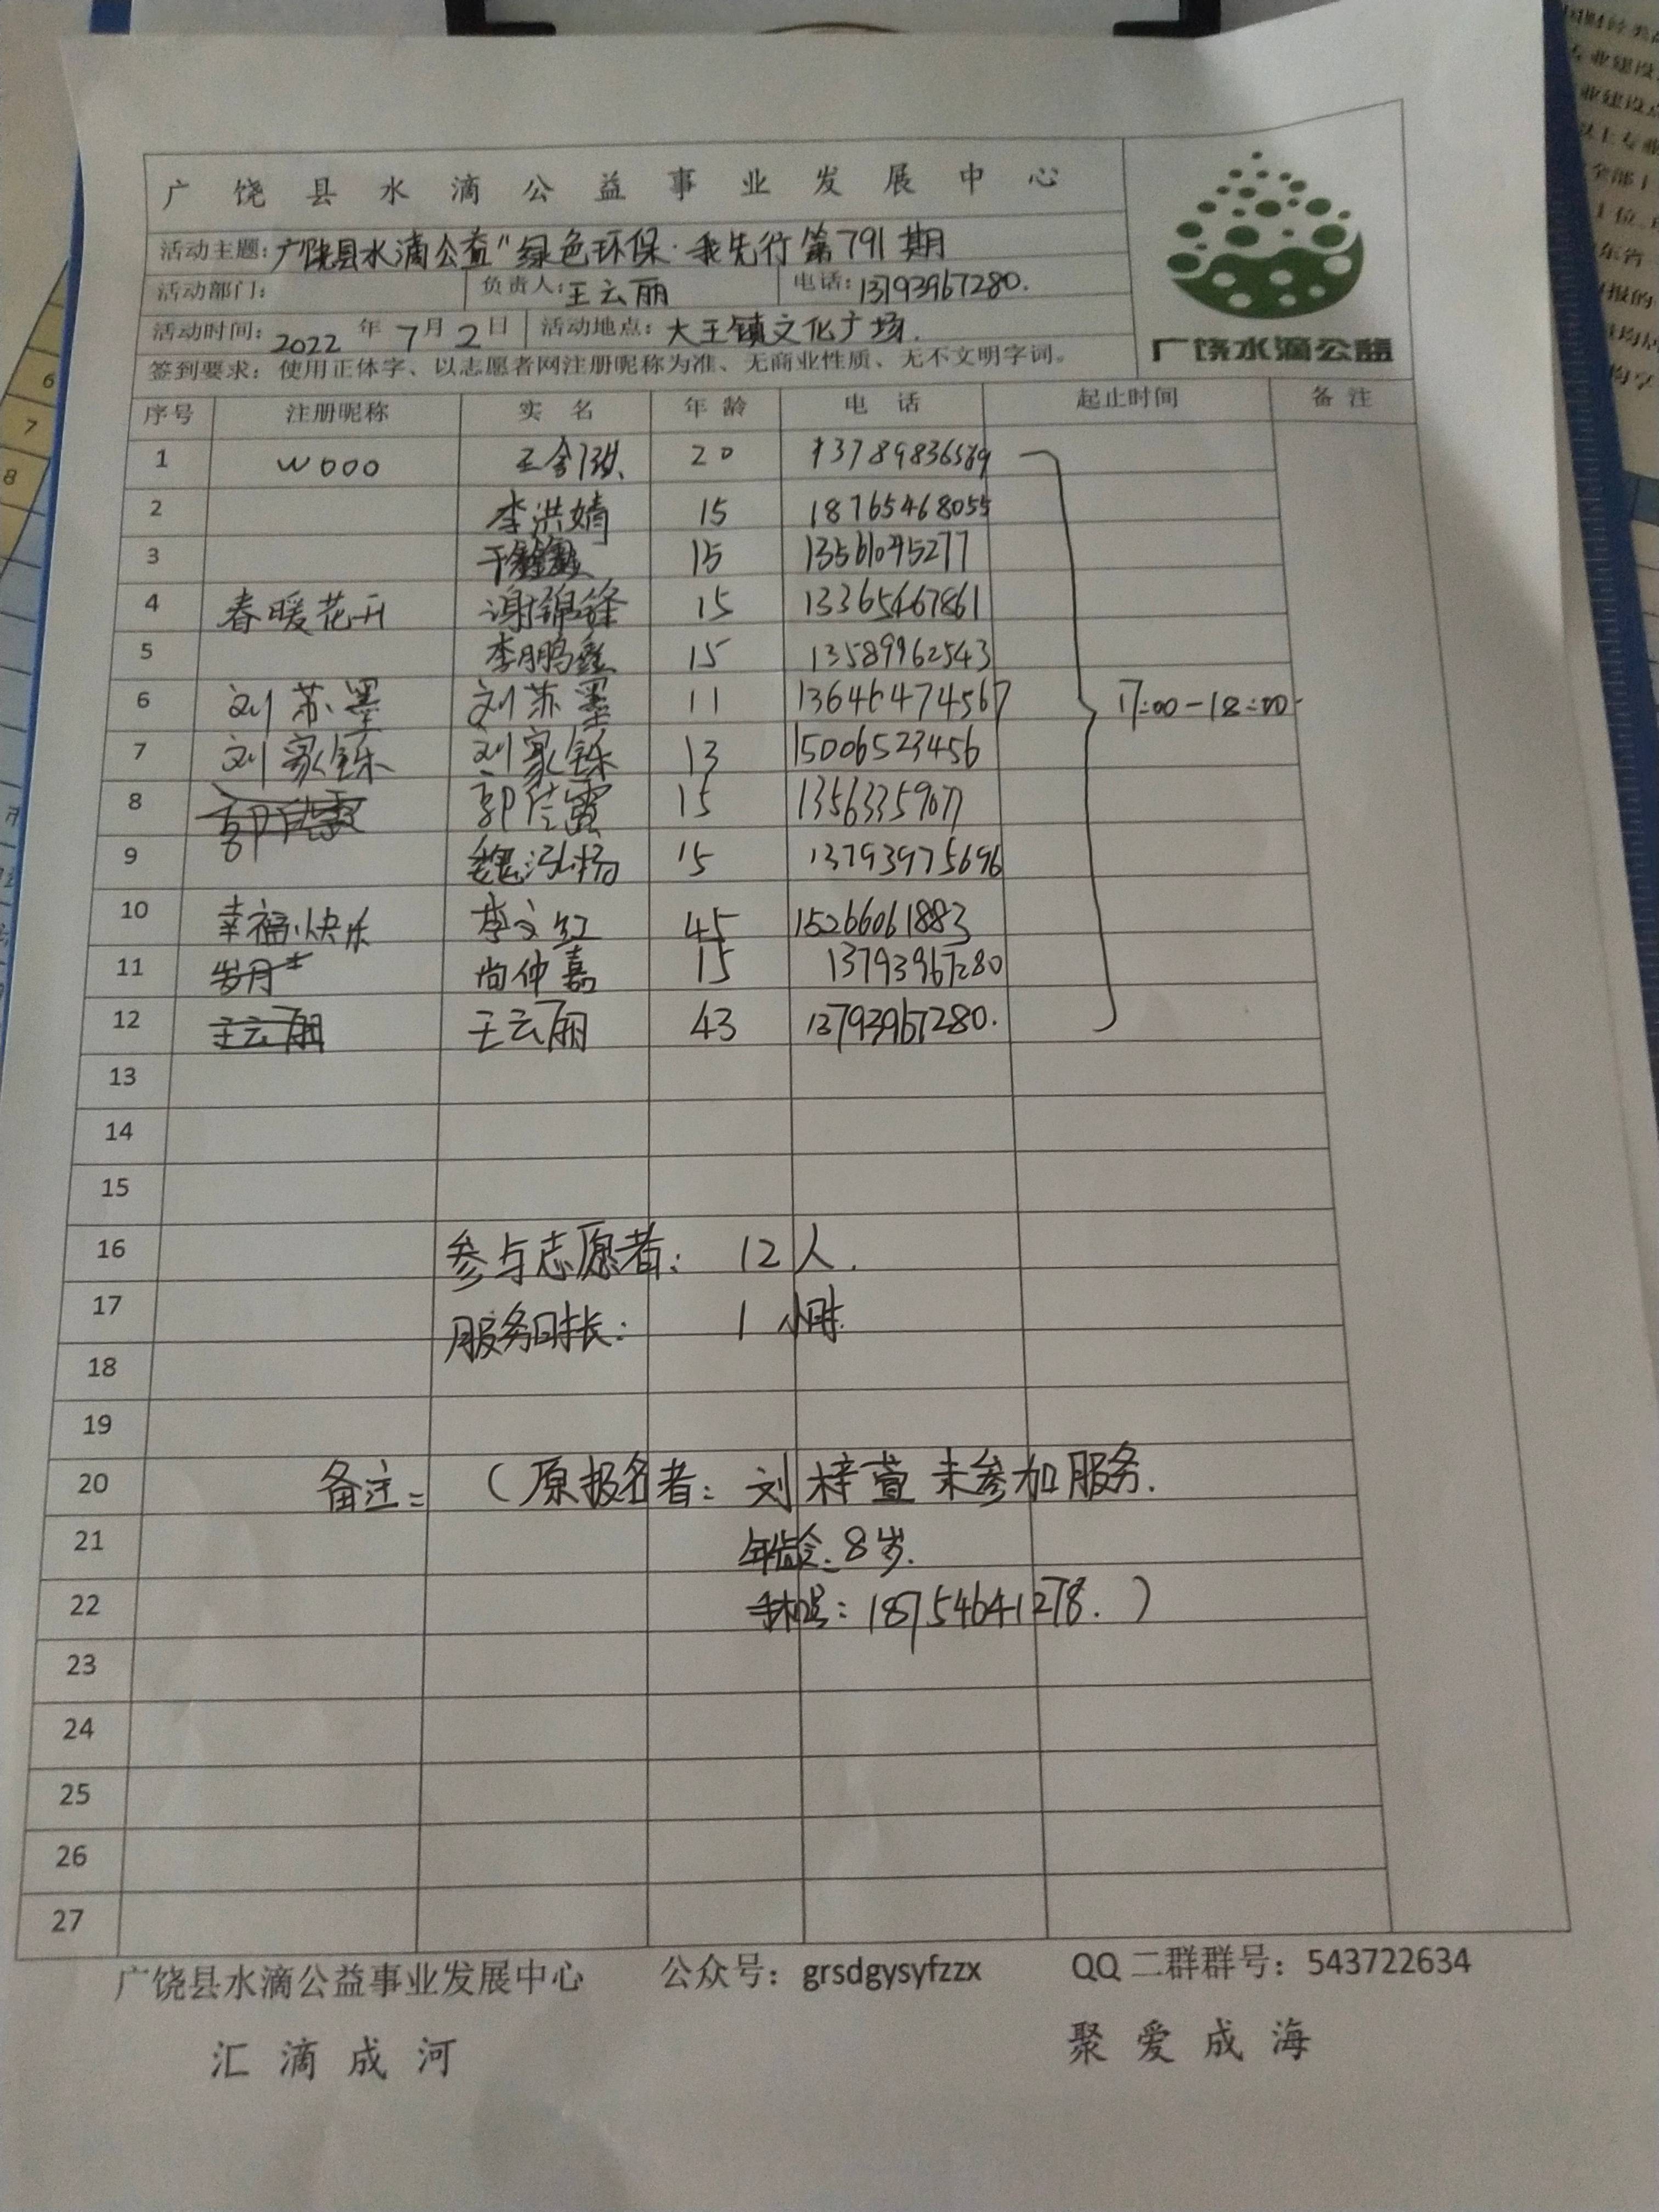 广饶县水滴公益事业发展中心
活动主题：广饶县水滴公益"绿色环保·我先行第791期
活动部门： 负责人：王云丽 电话：13793967280.
活动时间：2022年7月2日 活动地点：大王镇文化广场.
签到要求：使用正体字、以志愿者网注册昵称为准、无商业性质、无不文明字词。
广饶水滴公益
序号 注册昵称 实名 年龄 电话 起止时间 备注
1 wooo 20 13789836589
2 李洪婧 15 18765468055
3 15 13561095277
4 春暖花开 谢锦锋 15 13365467861
5 李鹏鑫 15 13589962543
6 刘苏墨 刘苏墨 11 13646474567 17:00-18:00
7 刘家铄 刘家铄 13 15006523456
8 郭佳霖 15 13563359077
9 魏泓杨 15 13793975696
10 幸福快乐 李文红 45 15266061883
11 岁月 尚仲嘉 15 13793967280
12 王云丽 王云丽 43 13793967280.
13
14
15
16 参与志愿者： 12人.
17 服务时长： 1小时.
18
19
20 备注：（原报名者：刘梓萱 未参加服务.
21 年龄：8岁.
22 手机号：18754641278.）
23
24
25
26
27
广饶县水滴公益事业发展中心 公众号：grsdgysyfzzx QQ二群群号：543722634
汇滴成河 聚爱成海